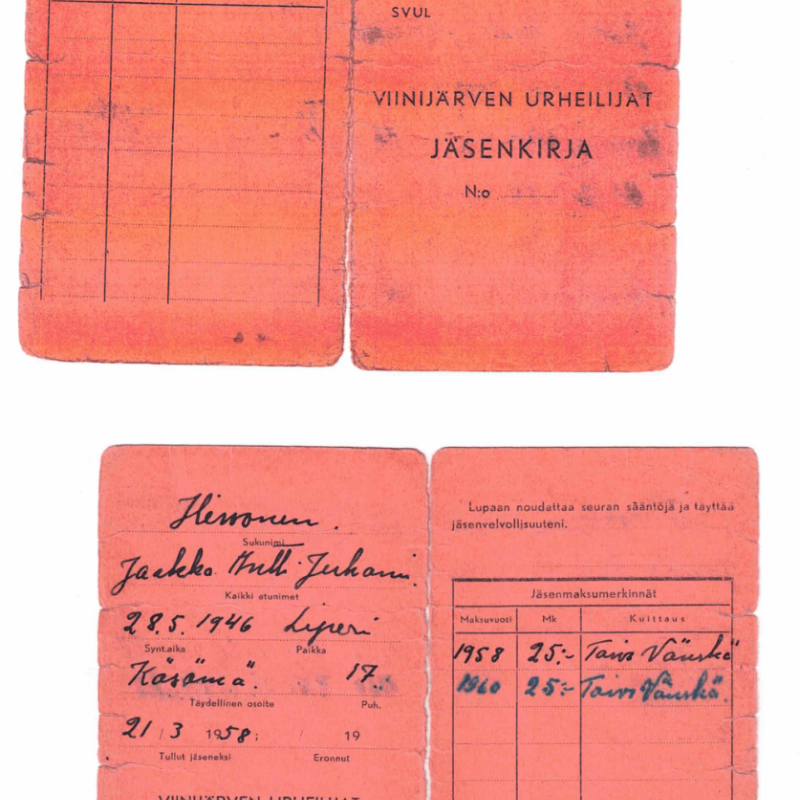 SVUL
VIINIJÄRVEN URHEILIJAT
JÄSENKIRJA
N:o
Hirvonen.
Sukunimi
Jaakko Antti Juhani
Kaikki etunimet
28.5.1946 Liperi
Synt.aika Paikka
Käsämä. 17.
Täydellinen osoite Puh.
21 / 3 1958: / 19
Tullut jäseneksi Eronnut
VIINIJÄRVEN URHEILIJAT
Lupaan noudattaa seuran sääntöjä ja täyttää
jäsenvelvollisuuteni.
Jäsenmaksumerkinnät
Maksuvuosi Mk Kuittaus
1958 25:- Toivo Vänskä
1960 25:- Toivo Vänskä.